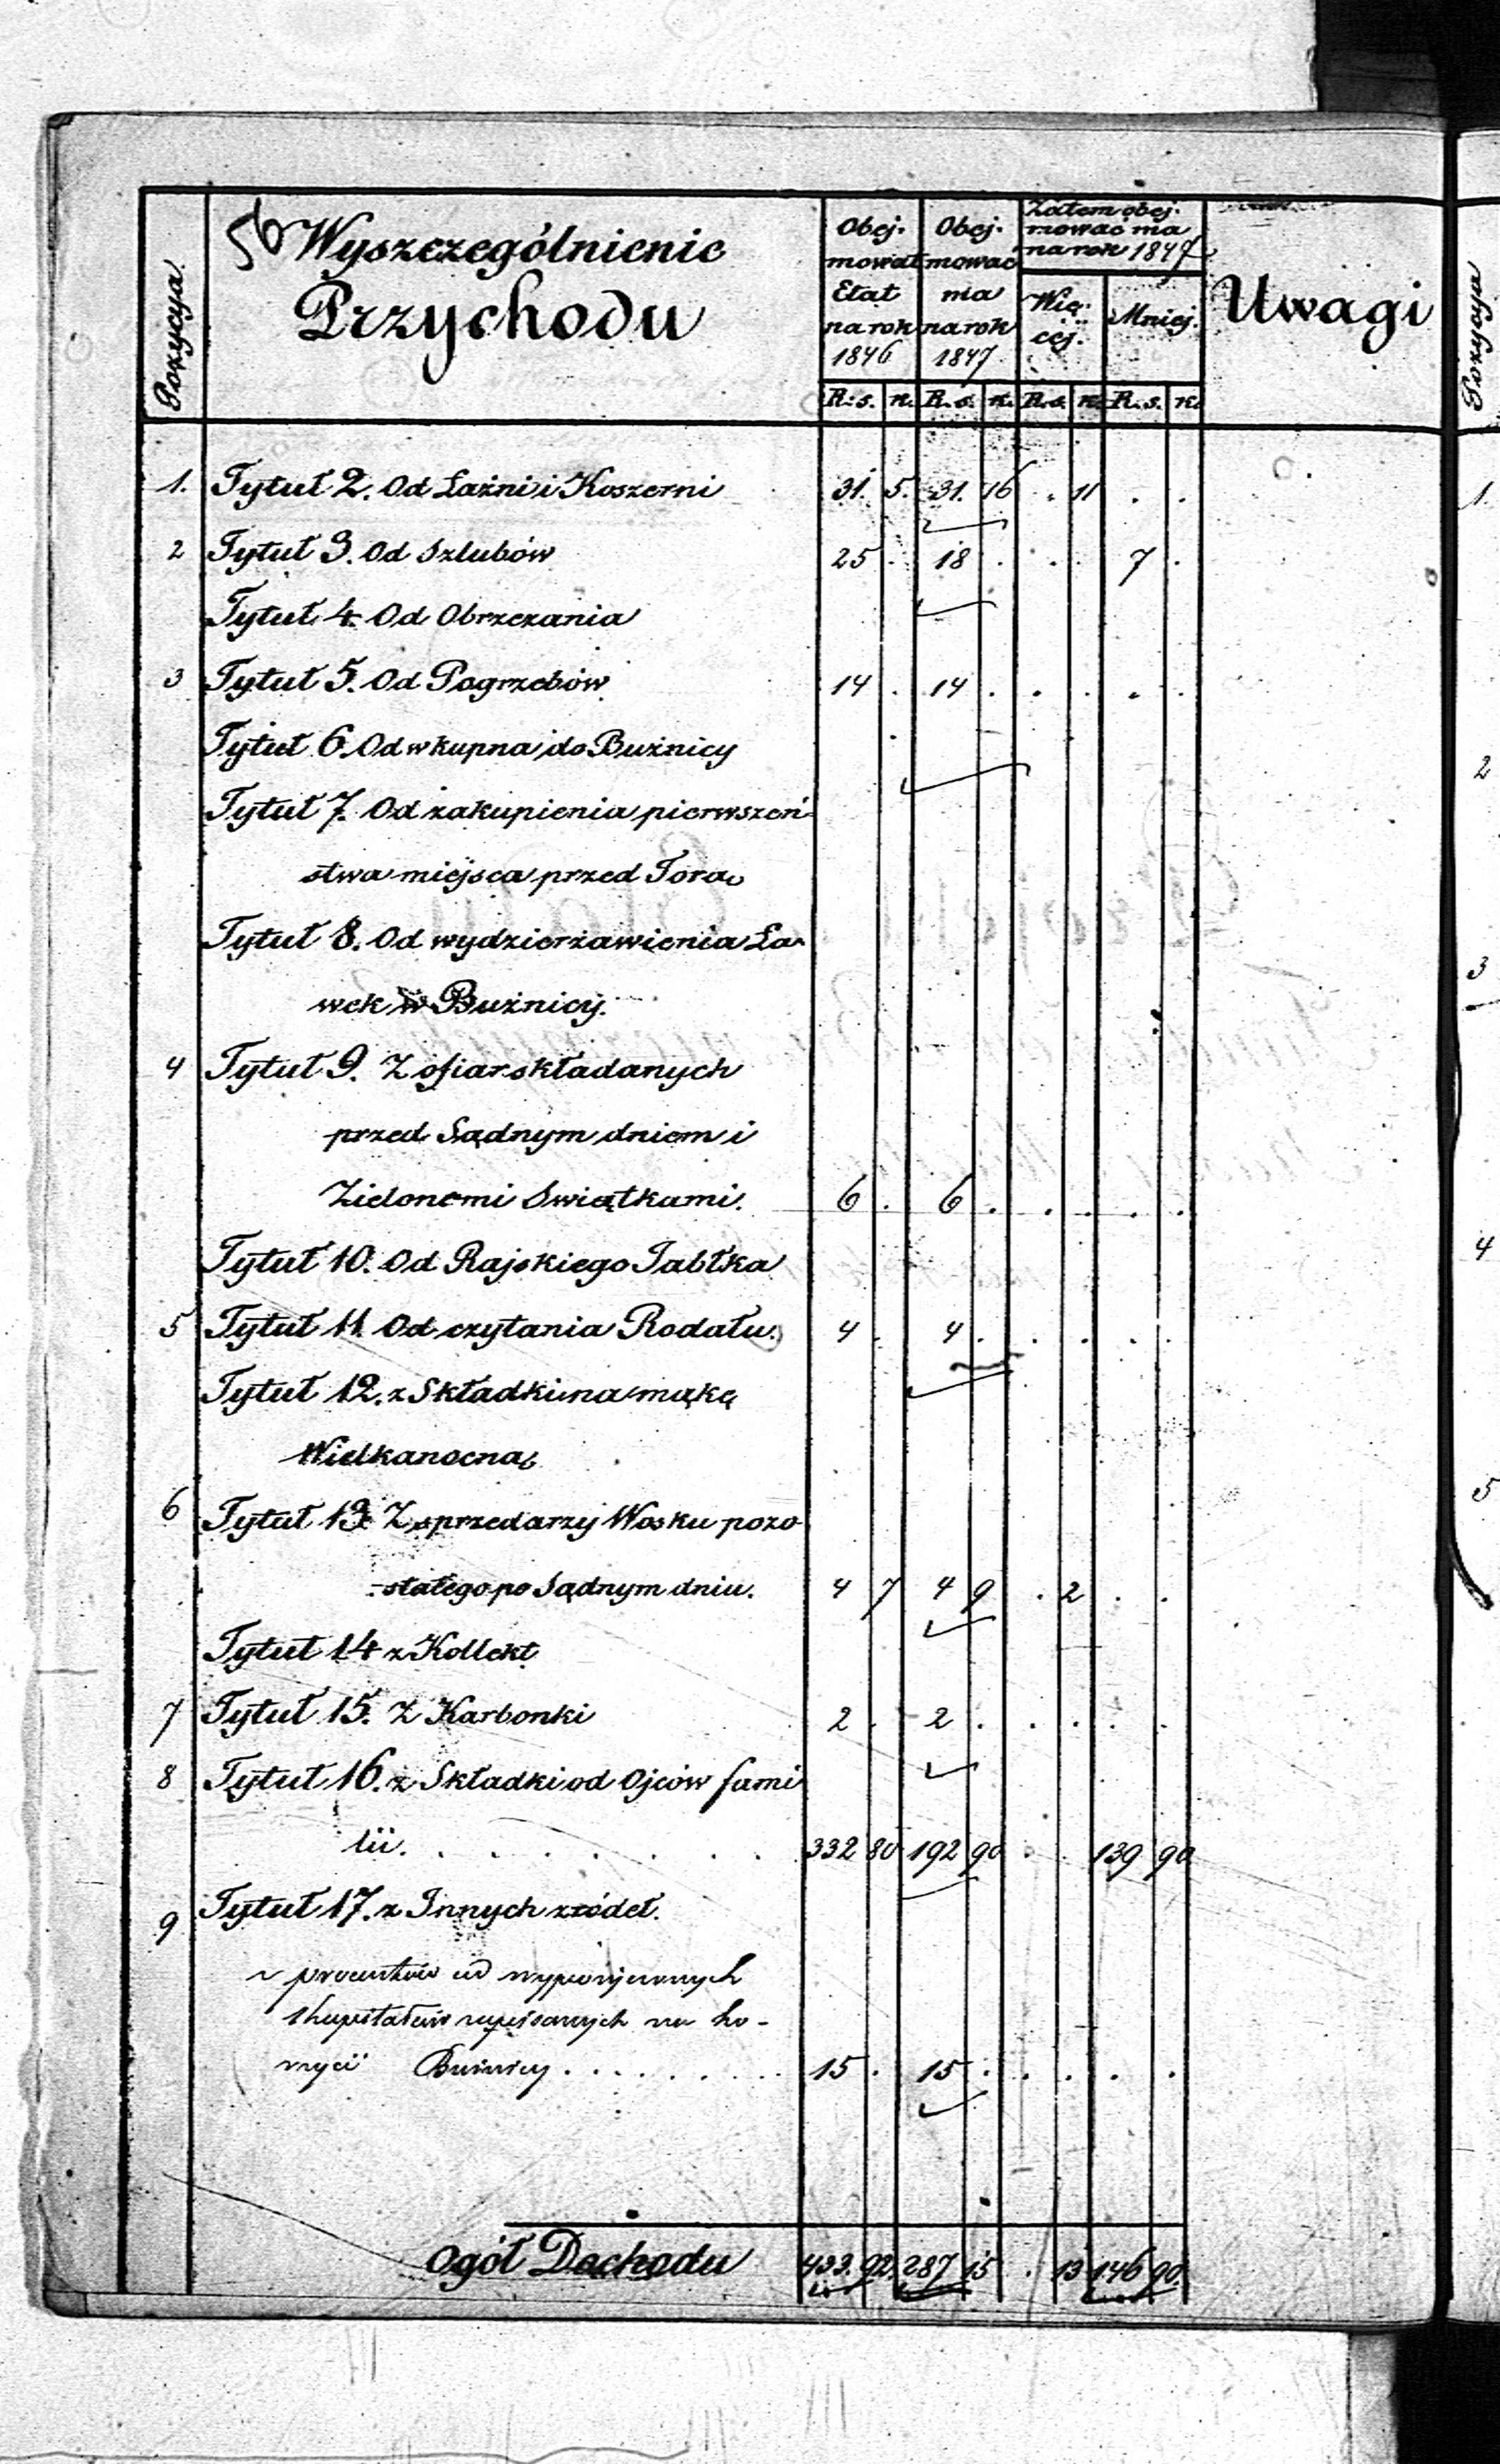 Pozycya
Wyszczególnienie
Przychodu
Obej-
mował
Etat
na rok
1846
Obej-
mować
ma
na rok
1847
Zatem obej-
mować ma
na rok 1847
Wię-
cej.
Mniej.
Uwagi
Pozycya
R. s. k. R. s. k. R. s. k. R. s. k.
1. Tytuł 2. Od Łaźni i Koszerni 31. 5. 31. 16 . 11 . .
2 Tytuł 3. Od Szlubów 25 . 18 . . . 7 .
Tytuł 4. Od Obrzezania
3 Tytuł 5. Od Pogrzebów 14 . 14 . . . . .
Tytuł 6. Od wkupna do Bużnicy
Tytuł 7. Od zakupienia pierwszeń-
stwa miejsca przed Torą
Tytuł 8. Od wydzierzawienia Ła-
wek w Bużnicy.
4 Tytuł 9. Z ofiar składanych
przed Sądnym dniem i
Zielonemi Swiątkami. 6 . 6 . . . . .
Tytuł 10. Od Rajskiego Jabłka
5 Tytuł 11. Od czytania Rodału. 4 . 4 . . . . .
Tytuł 12. z Składki na mąkę
Wielkanocną
6 Tytuł 13. Z sprzedarzy Wosku pozo
stałego po Sądnym dniu. 4 7 4 9 . 2 . .
Tytuł 14 z Kollekt
7 Tytuł 15. Z Karbonki 2 . 2 . . . . .
8 Tytuł 16. z Składki od Ojców fami
lii. . . . . . . . 332 80 192 90 . . 139 90
9 Tytuł 17. z Innych zródeł.
procentów od
na
Bużnicy . . . . . . . . . 15 . 15 . . . . .
Ogół Dochodu 433. 92. 287 15 . 13 146 90.
1.
2
3
4
5